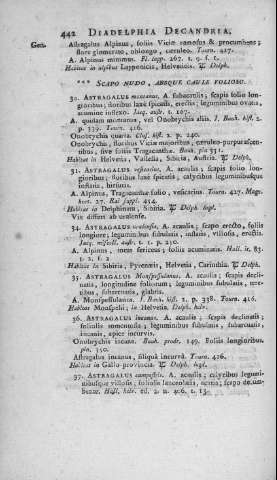 442 DIADELPHIA DECANDRIA.
Gen. Astragalus Alpinus, foliis Viciæ ramosus & procumbens;
flore glomerato, oblongo, cæruleo. Tourn. 417.
A. alpinus minimus. Fl. lapp. 267. t. 9. f. 1.
Habitat in alpibus Lapponicis, Helveticis. Delph.
*** SCAPO NUDO, ABSQUE CAULE FOLIOSO.
30. ASTRAGALUS montanus. A. subacaulis; scapis folio
longioribus; floribus laxe spicatis, erectis; leguminibus ovatis,
acumine inflexo. Jacq. austr. t. 167.
A. quidam montanus, vel Onobrychis aliis. J. Bauh. hist. 2.
p. 339. Tourn. 416.
Onobrychis quarta Cluf. hist. 2. p. 240.
Onobrychis, floribus Viciæ majoribus, cæruleo-purpurascentibus,
sive foliis Tragacanthæ. Bauh. pin. 351.
Habitat in Helvetia, Vallesia, Sibiria, Austria. Delph.
31. ASTRAGALUS vesicarius. A. acaulis; scapis folio
longioribus; floribus laxe spicatis; calycibus leguminibusque
inflatis, hirsutis.
A. Alpinus, Tragacanthæ folio, vesicarius. Tourn. 417.
Habitat in Delphinatu, Sibiria. Delph.
Vix differt ab uralense.
34. ASTRAGALUS uralensis. A. acaulis; scapo erecto, foliis
longiore; leguminibus subulatis, inflatis, villosis, erectis.
A. alpinus, metis sericeus; foliis acuminatis. Hall. it. 83.
t. 2. f. 2
Habitat in Sibiria, Pyreneis, Helvetia, Carinthia. Delph.
35. ASTRAGALUS Monspessulanus. A. acaulis; scapis declinatis,
longitudine foliorum; leguminibus subulatis, teretibus,
subarcuatis, glabris.
A. Monspessulanus. J. Bauh. hist. 2. p. 338. Tourn. 416.
Habitat Monspelii, in Helvetia. Delph. hal.
36. ASTRAGALUS incanus. A. acaulis; scapis declinatis;
foliolis tomentosis; leguminibus subulatis, subarcuatis,
incanis, apice incurvis.
Onobrychis incana. Bauh. prodr. 149. Foliis longioribus.
pin. 350.
Astragalus incanus, siliqua incurva. Tourn. 416.
Habitat in Gallo provincia. Delph.
37. ASTRAGALUS campestris. A. acaulis; calycibus leguminibusque
villosis; foliolis lanceolatis, acutis; scapo decumbente.
Hall. helv.